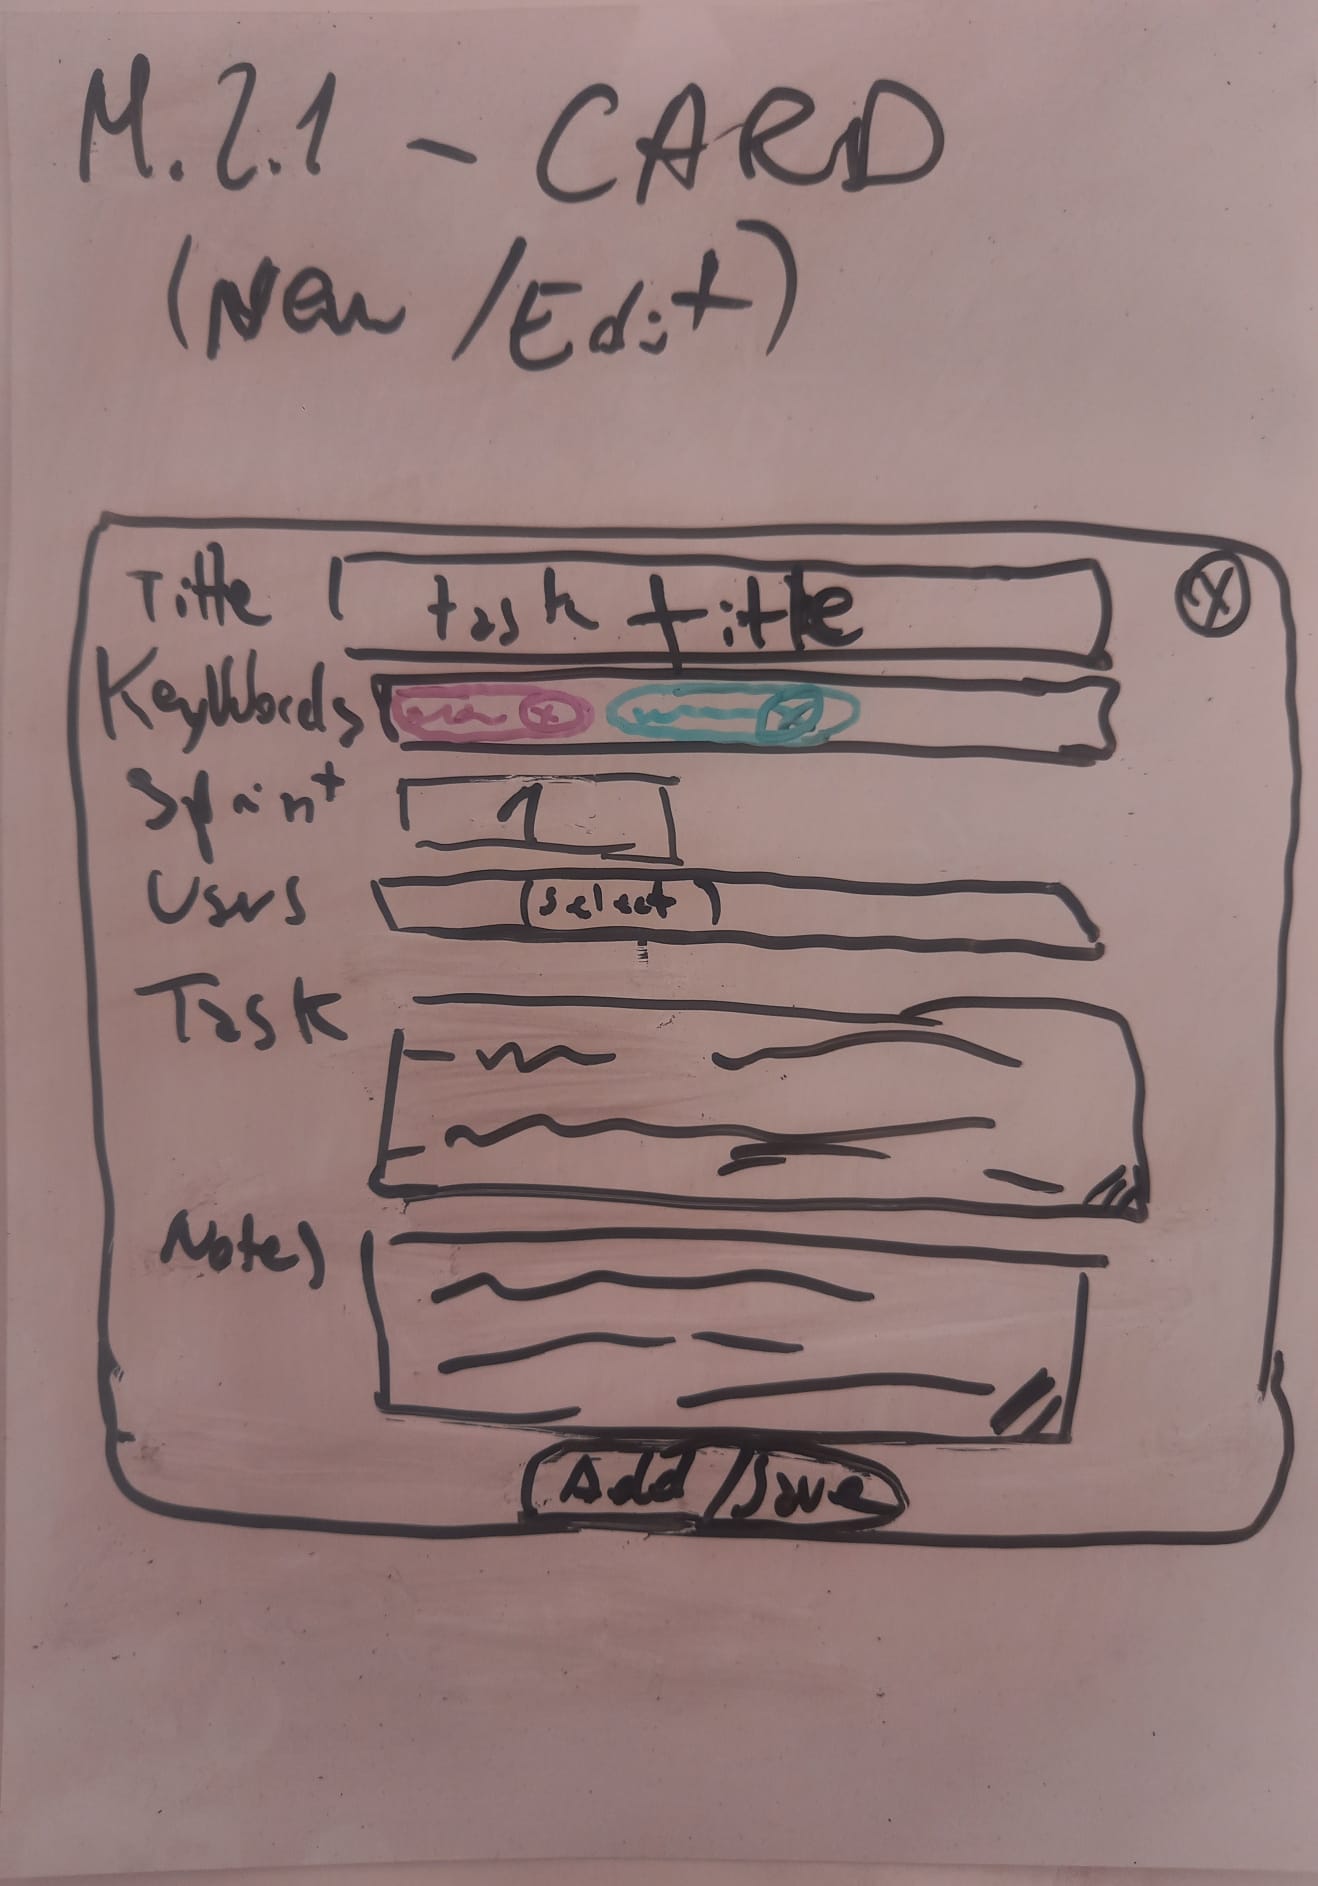 M.2.1 - CARD
(New /Edit)
Title task title
KeyWords x x
Sprint 1
Users select
Task
Notes
Add /Save
X